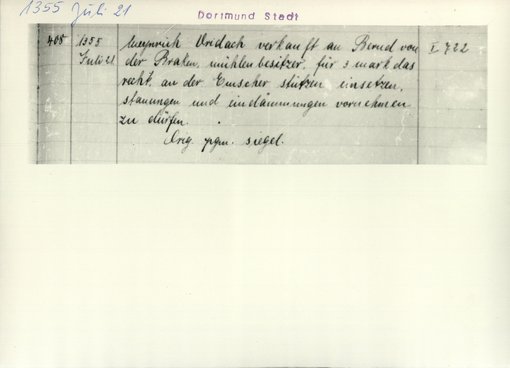 1355 Juli 21
Dortmund Stadt
405 1355 Meynrich Vridach verkauft an Bernd von I 722
Juli 21 der Braken, mühlenbesitzer, für 3 mark das
recht, an der Emscher stützen einsetzen,
stauungen und eindämmungen vornehmen
zu dürfen.
Orig. pgm. siegel.